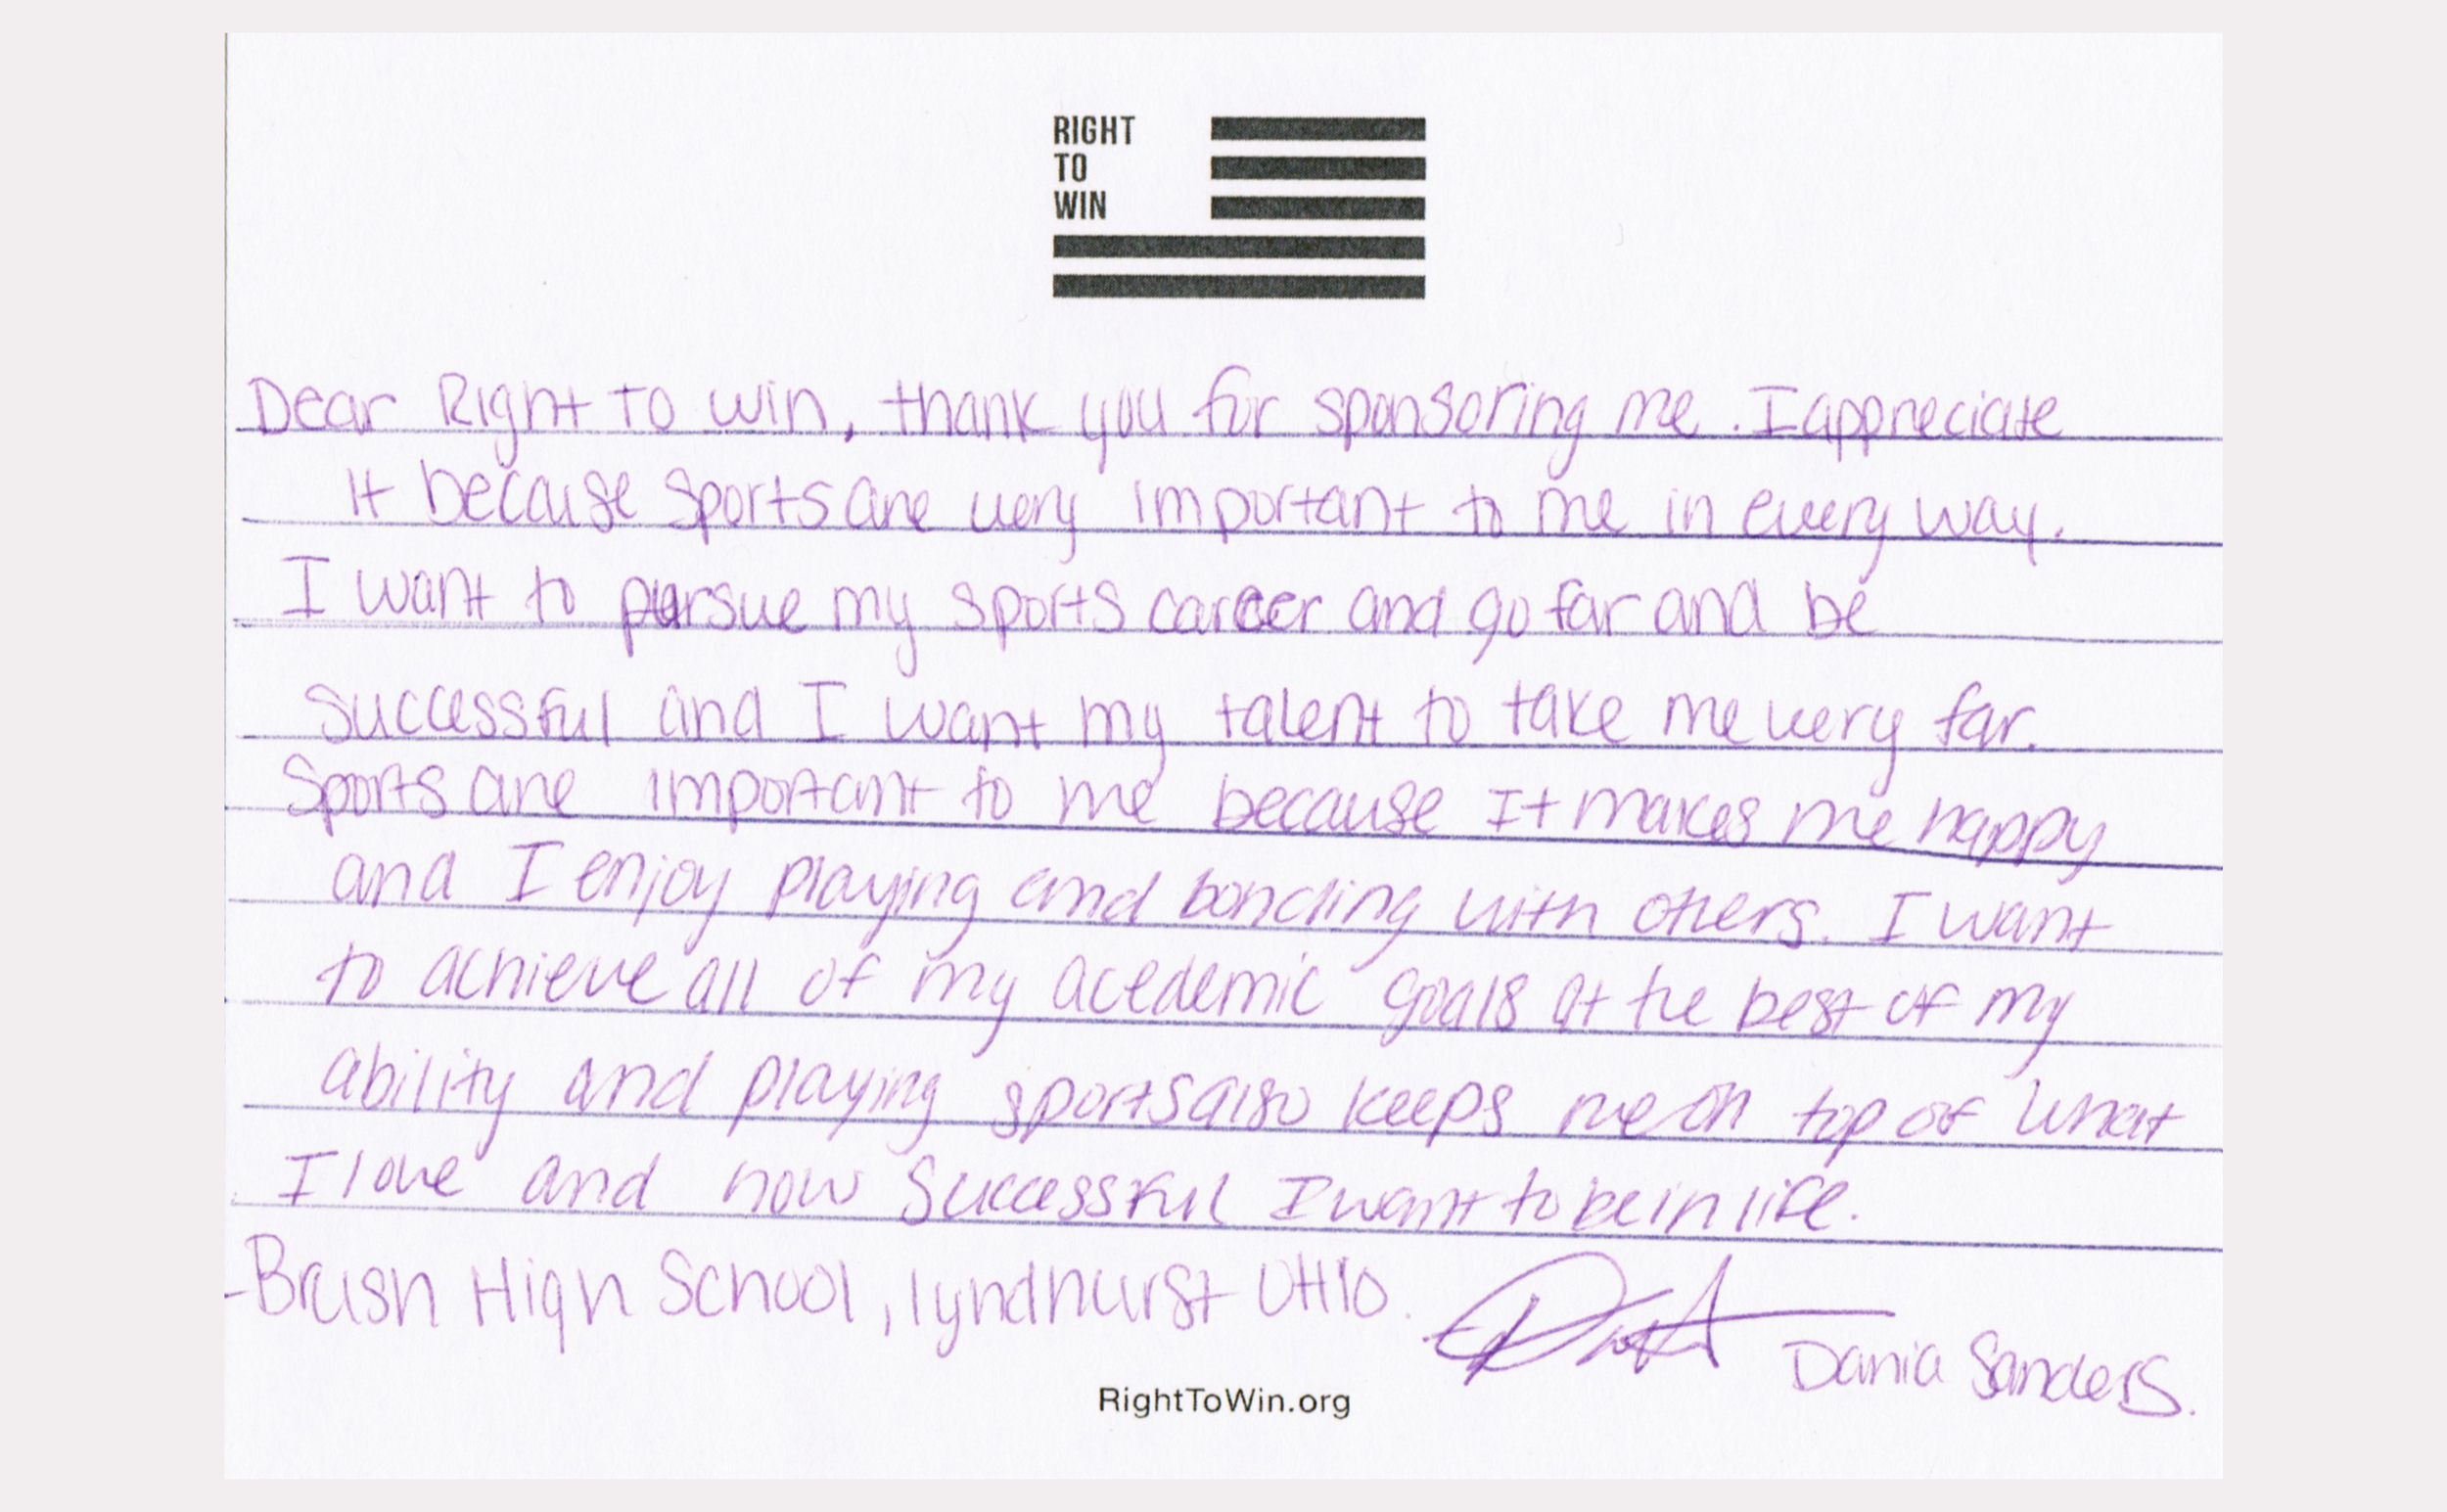 RIGHT
TO
WIN
Dear Right to win, thank you for sponsoring me. I appreciate
it because sports are very important to me in every way.
I want to pursue my sports career and go far and be
successful and I want my talent to take me very far.
Sports are important to me because It makes me happy
and I enjoy playing and bonding with others. I want
to achieve all of my acedemic goals at the best of my
ability and playing sports also keeps me on top of what
I love and how successful I want to be in life.
-Brush High School, lyndhurst OHIO.
Dania Sanders.
RightToWin.org